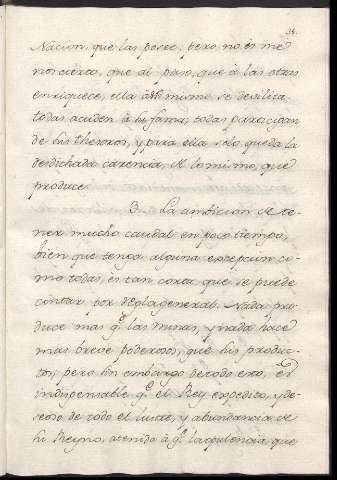 34.
Nacion, que las posee, pero no es me
nos cierto, que al paso, que à las otras
enriquece, ella mismo se devilita
todas acuden à su fama, todas participan
de sus thesoros, y para ella solo queda la
desdichada carencia, de lo mismo, que
produce.
3. La ambicion de te-
ner mucho caudal en poco tiempo,
bien que tenga alguna excepcion co
mo todas, es tan corta que se puede
contar por regla general. Nada pro
duce mas q.e las minas, y nada hace
mas breve poderosos, que sus produc-
tos, pero sin embargo de todo esto, es
indispensable q.e el Rey expedito, y de-
seoso de todo el lustre, y abundancia de
su Reyno, atenido à q.e la opulencia que